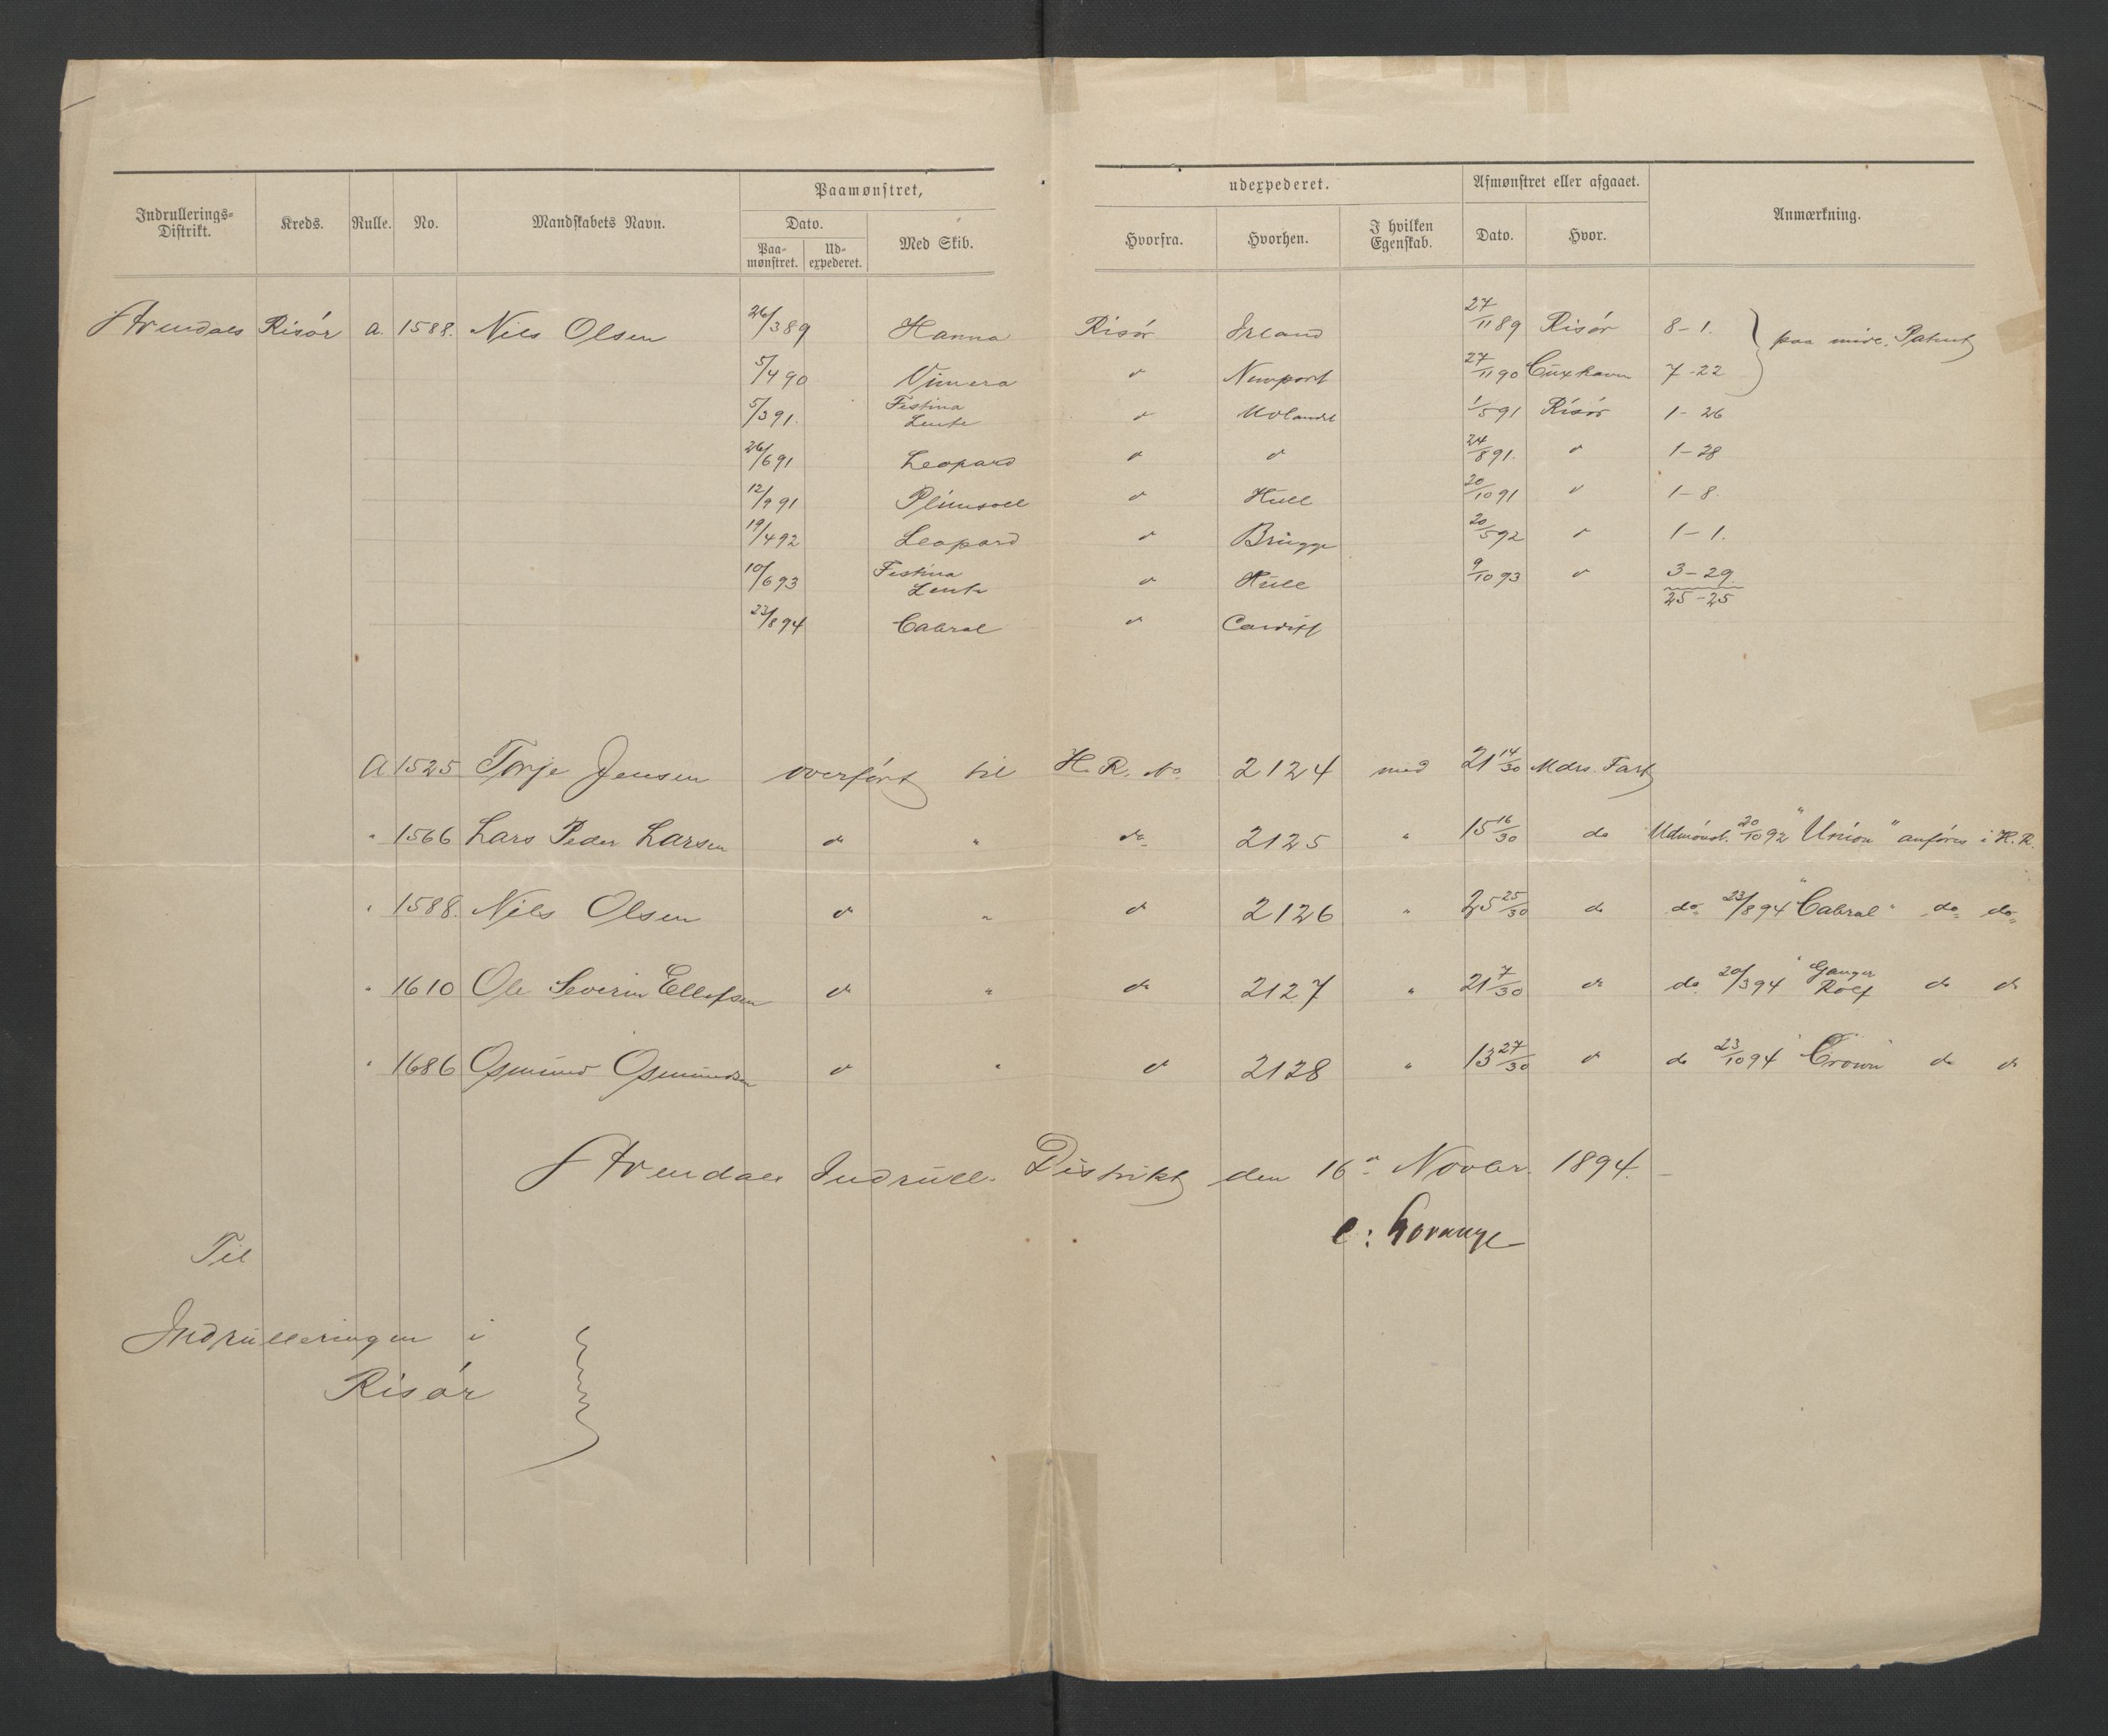 Paamønstret, udexpederet. Afmønstret eller afgaaet.
Indrullerings-Distrikt. Kreds. Rulle. No. Mandskabets Navn. Dato. Med Skib. Hvorfra. Hvorhen. I hvilken Egenskab. Dato. Hvor. Anmærkning.
Paa-mønstret. Ud-expederet.
Arendals Risör a. 1588. Nils Olsen 26/3 89 Hanna Risör Irland 27/11 89 Risör 8-1. } paa indl. Patent
5/4 90 Vimera d Newport 27/11 90 Cuxhaven 7-22
5/3 91. Festina Lente d Udlandet 1/5 91 Risör 1-26
26/6 91 Leopard d d 24/8 91. d 1-28
12/9 91 Plimsoll d Hull 20/10 91 d 1-8.
19/4 92 Leopard d Brügge 20/5 92 d 1-1.
10/6 93 Festina Lente d Hull 9/10 93 d 3-29
25-25
23/8 94 Cabral d Cardiff
A 1525 Torje Jensen overfört til H. R. No. 2124 med 21 14/30 Mdrs. Fart
" 1566 Lars Peder Larsen do " do 2125 " 15 16/30 do Udmönst. 20/10 92 "Union" anföres i H. R.
" 1588. Nils Olsen do " do 2126 " 25 25/30 do do 23/8 94 "Cabral" do do
" 1610 Ole Severin Ellefsen do " do 2127 " 21 7/30 do do 20/3 94 "Ganger Rolf do do
" 1686 Osmund Osmundsen do " do 2128 " 13 27/30 do do 23/10 94 "Crown" do do
Arendals Indrull. Distrikt den 16de Novbr. 1894.
C: Lorange
Til
Indrulleringen i
Risör